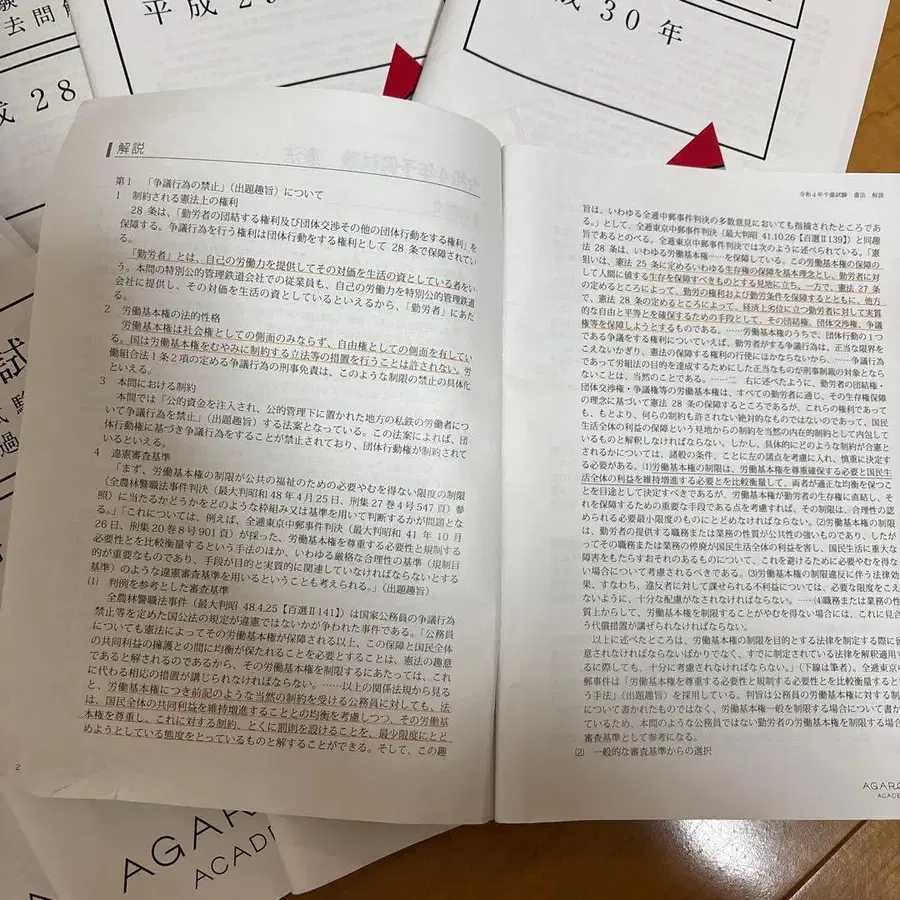 去問
平成 2
成 30 年
成 28
試
過
解説
第1 「争議行為の禁止」(出題趣旨)について
1 制約される憲法上の権利
28 条は、「勤労者の団結する権利及び団体交渉その他の団体行動をする権利」を
保障する。争議行為を行う権利は団体行動をする権利として 28 条で保障されてい
る。
「勤労者」とは、自己の労働力を提供してその対価を生活の資としている者をい
う。本問の特別公的管理鉄道会社での従業員も、自己の労働力を特別公的管理鉄道
会社に提供し、その対価を生活の資としているといえるから、「勤労者」にあた
る。
2 労働基本権の法的性格
労働基本権は社会権としての側面のみならず、自由権としての側面を有してい
る。国は労働基本権をむやみに制約する立法等の措置を行うことは許されない。労
働組合法 1 条 2 項の定める争議行為の刑事免責は、このような制限の禁止の具体化
といえる。
3 本問における制約
本問では「公的資金を注入され、公的管理下に置かれた地方の私鉄の労働者につ
いて争議行為を禁止」(出題趣旨)する法案となっている。この法案によれば、団
体行動権に基づき争議行為をすることが禁止されており、団体行動権が制約されて
いるといえる。
4 違憲審査基準
「まず、労働基本権の制限が公共の福祉のための必要やむを得ない限度の制限
(全農林警職法事件判決(最大判昭和 48 年 4 月 25 日、刑集 27 巻 4 号 547 頁)参
照)に当たるかどうかをどのような枠組み又は基準を用いて判断するかが問題とな
る。」「これについては、例えば、全逓東京中郵事件判決(最大判昭和 41 年 10 月
26 日、刑集 20 巻 8 号 901 頁)が採った、労働基本権を尊重する必要性と規制する
必要性とを比較衡量するという手法のほか、いわゆる厳格な合理性の基準(規制目
的が重要なものであり、手段が目的と実質的に関連していなければならないとする
基準)のような違憲審査基準を用いるということも考えられる。」(出題趣旨)
(1) 判例を参考とした審査基準
全農林警職法事件(最大判昭 48.4.25【百選Ⅱ141】)は国家公務員の争議行為
禁止等を定めた国公法の規定が違憲ではないかが争われた事件である。「公務員
についても憲法によってその労働基本権が保障される以上、この保障と国民全体
の共同利益の擁護との間に均衡が保たれることを必要とすることは、憲法の趣意
であると解されるのであるから、その労働基本権を制限するにあたっては、これ
に代わる相応の措置が講じられなければならない。……以上の関係法規から見る
と、労働基本権につき前記のような当然の制約を受ける公務員に対しても、法
は、国民全体の共同利益を維持増進することとの均衡を考慮しつつ、その労働基
本権を尊重し、これに対する制約、とくに罰則を設けることを、最少限度にとど
めようとしている態度をとっているものと解することができる。そして、この趣
2
令和4年予備試験 憲法 解説
旨は、いわゆる全逓中郵事件判決の多数意見においても指摘されたところであ
る。」として、全逓東京中郵事件判決(最大判昭 41.10.26【百選Ⅱ139】)と同趣
旨であるとのべる。全逓東京中郵事件判決では次のように述べられている。「憲
法 28 条は、いわゆる労働基本権……を保障している。この労働基本権の保障の
狙いは、憲法 25 条に定めるいわゆる生存権の保障を基本理念とし、勤労者に対
して人間に値する生存を保障すべきものとする見地に立ち、一方で、憲法 27 条
の定めるところによって、勤労の権利および勤労条件を保障するとともに、他方
で、憲法 28 条の定めるところによって、経済上劣位に立つ勤労者に対して実質
的な自由と平等とを確保するための手段として、その団結権、団体交渉権、争議
権等を保障しようとするものである。……労働基本権のうちで、団体行動の 1 つ
である争議をする権利についていえば、勤労者がする争議行為は、正当な限界を
こえないかぎり、憲法の保障する権利の行使にほかならないから、……争議行為
であって労組法の目的を達成するためにした正当なものが刑事制裁の対象となら
ないことは、当然のことである。……二 右に述べたように、勤労者の団結権・
団体交渉権・争議権等の労働基本権は、すべての勤労者に通じ、その生存権保障
の理念に基づいて憲法 28 条の保障するところであるが、これらの権利であって
も、もとより、何らの制約も許されない絶対的なものではないのであって、国民
生活全体の利益の保障という見地からの制約を当然の内在的制約として内包して
いるものと解釈しなければならない。しかし、具体的にどのような制約が合憲と
されるかについては、諸般の条件、ことに左の諸点を考慮に入れ、慎重に決定す
る必要がある。(1)労働基本権の制限は、労働基本権を尊重確保する必要と国民生
活全体の利益を維持増進する必要とを比較衡量して、両者が適正な均衡を保つこ
とを目途として決定すべきであるが、労働基本権が勤労者の生存権に直結し、そ
れを保障するための重要な手段である点を考慮すれば、その制限は、合理性の認
められる必要最小限度のものにとどめなければならない。(2)労働基本権の制限
は、勤労者の提供する職務または業務の性質が公共性の強いものであり、したが
ってその職務または業務の停廃が国民生活全体の利益を害し、国民生活に重大な
障害をもたらすおそれのあるものについて、これを避けるために必要やむを得な
い場合について考慮されるべきである。(3)労働基本権の制限違反に伴う法律効
果、すなわち、違反者に対して課せられる不利益については、必要な限度をこえ
ないように、十分な配慮がなされなければならない。……(4)職務または業務の性
質上からして、労働基本権を制限することがやむを得ない場合には、これに見合
う代償措置が講ぜられなければならない。
以上に述べたところは、労働基本権の制限を目的とする法律を制定する際に留
意されなければならないばかりでなく、すでに制定されている法律を解釈適用す
るに際しても、十分に考慮されなければならない。」(下線は筆者)。全逓東京中
郵事件は「労働基本権を尊重する必要性と規制する必要性とを比較衡量するとい
う手法」(出題趣旨)を採用している。判旨は公務員の労働基本権に対する制
について書かれたものではなく、労働基本権一般を制限する場合について書か
ているため、本問のような公務員ではない勤労者の労働基本権を制限する場合
審査基準として参考になる。
(2) 一般的な審査基準からの選択
AGAR
ACADE
AGAR
ACADE